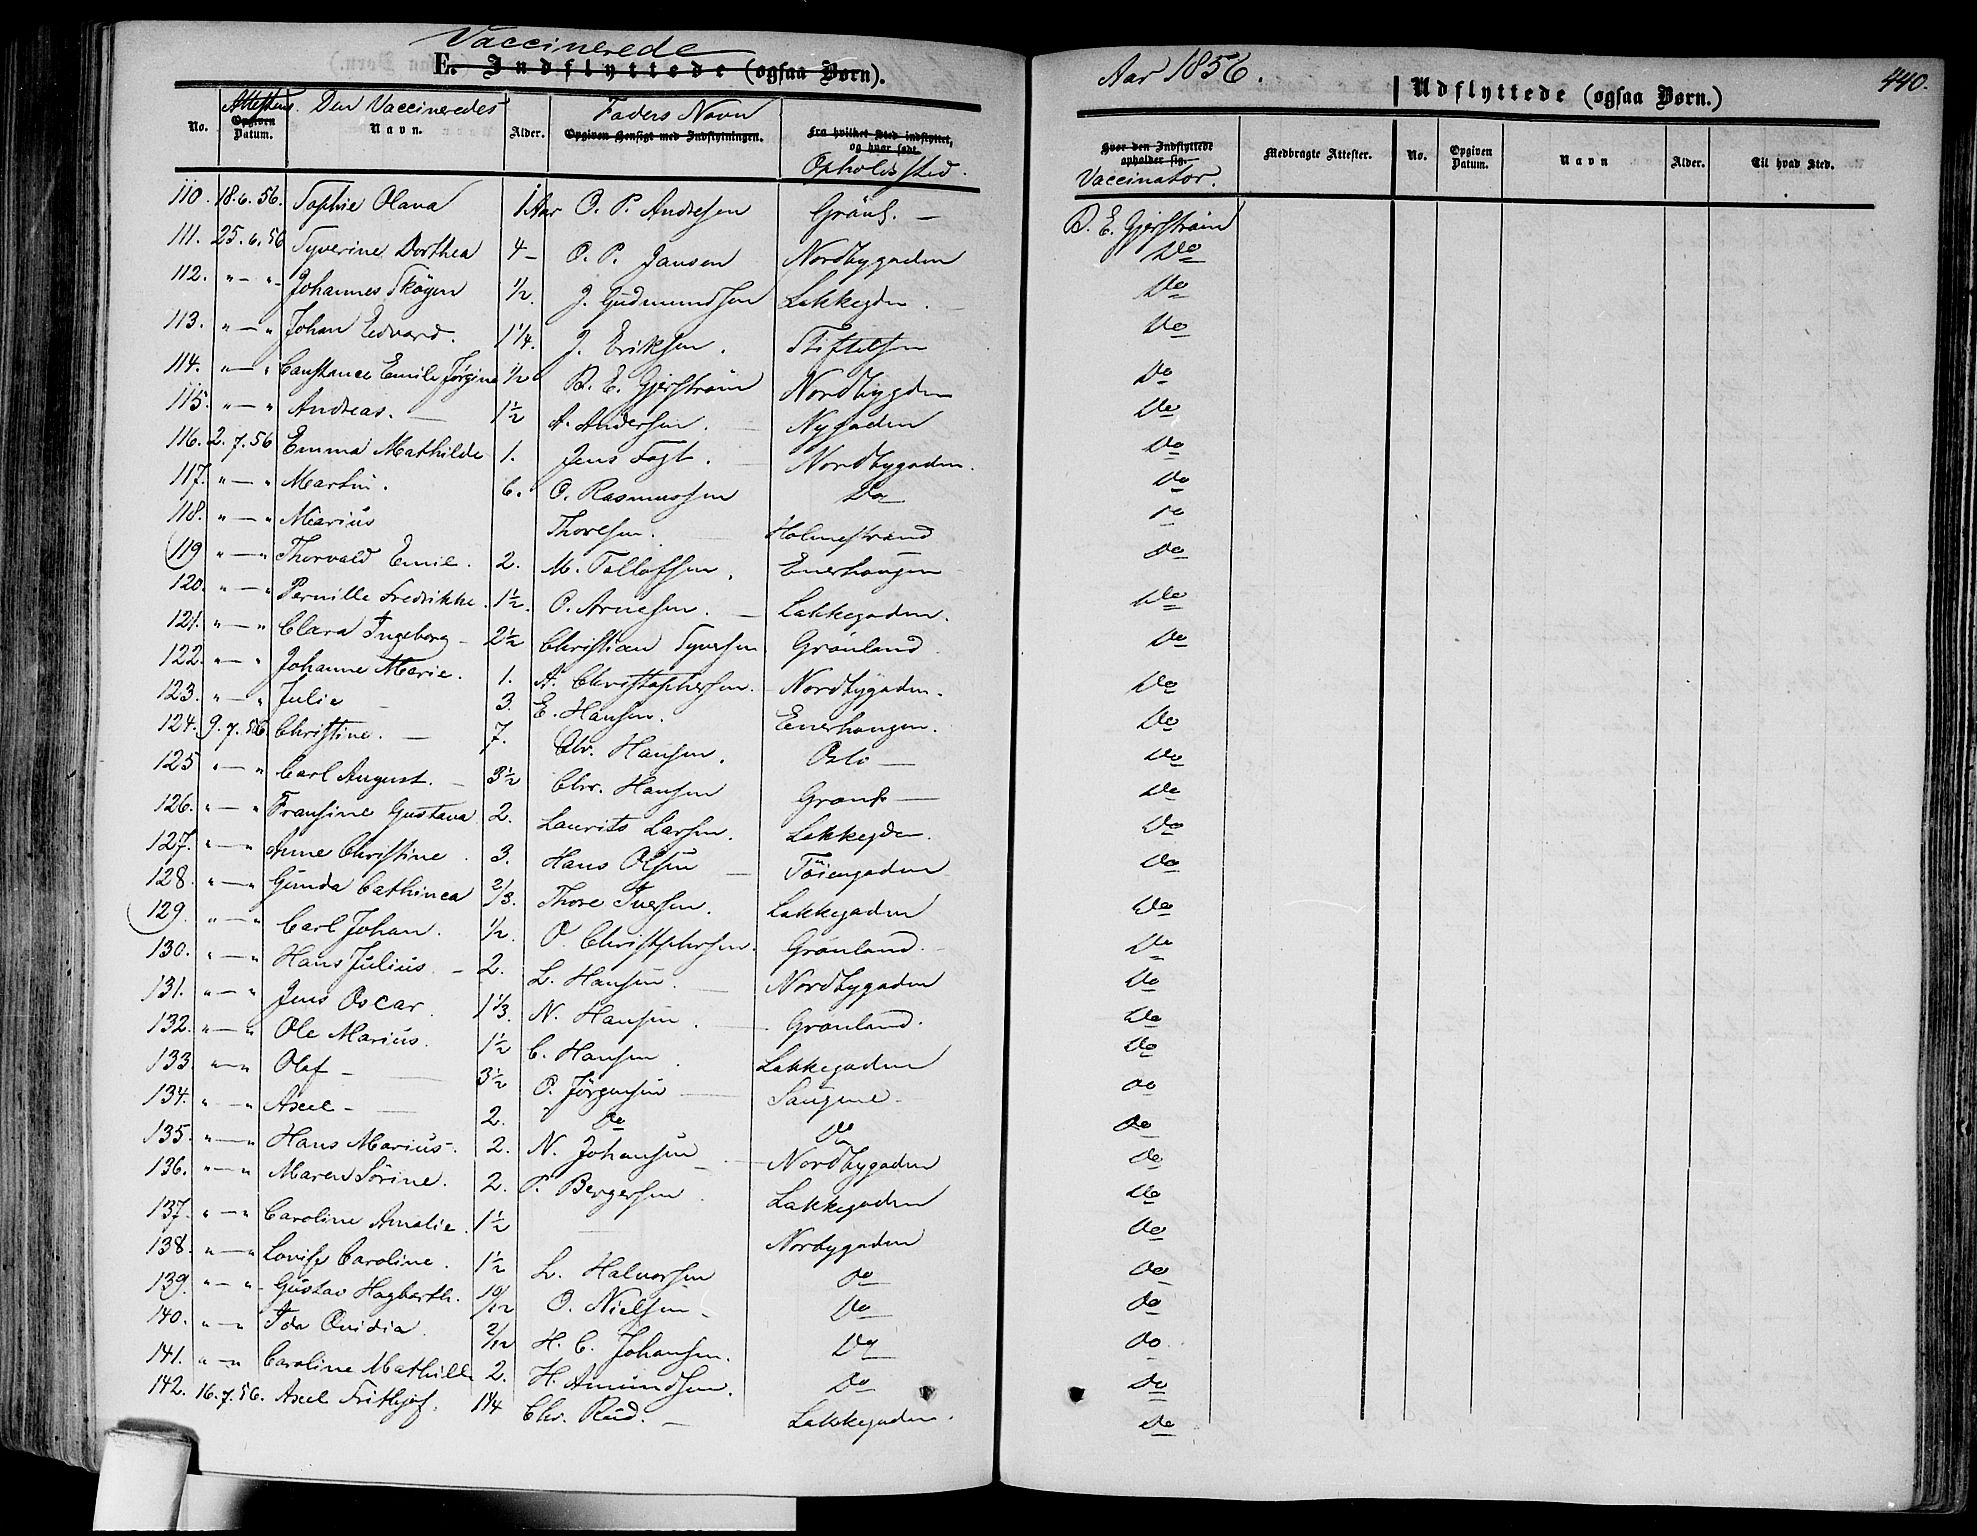 Vaccinerede
E. Indflyttede (ogsaa Børn).
Aar 1856.
Udflyttede (ogsaa Børn.)
440.
No. Attestens Opgiven Datum. Den Vaccineredes Navn. Alder. Faders Navn Opgiven Hensigt med Indflytningen. Fra hvilket Sted indflyttet, og hvor født. Opholdssted. Hvor den Indflyttede opholder sig. Vaccinator. Medbragte Attester. No. Opgiven Datum. Navn Alder. Til hvad Sted.
110. 18.6.56. Sophie Olava 1 Aar O. P. Andresen Grönl. — B. E. Gjerström
111. 25.6.56 Syverine Dorthea 4 – O. P. Jansen Nordbygaden Do
112. " — " Johannes Skøyen 1/2. J. Gudmundsen Lakkegden. — Do
113. " — " Johan Edvard. 1 1/4. J. Eriksen. Stiftelsen Do
114. " — " Constance Emilie Jørgine 1/2 B. E. Gjerström Nordbygden Do
115. " — " Andreas. — 1 1/2 A. Andersen. — Nygaden Do
116. 2.7.56 Emma Mathilde 1. Jens Fogt. — Nordbygaden. Do
117. " — " Martin. 6. O. Rasmussen Do Do
118. " — " Marius Thoresen. — Holmestrand Do
119 " — " Thorvald Emil. 2. M. Tollofsen. Enerhaugen Do
120. " — " Pernille Fredrikke. 1 1/2. O. Arnesen. — Lakkegaden. Do
121. " — " Clara Ingeborg — 2 1/2 Christian Syversen Grönland Do
122. " — " Johanne Marie. 1. A. Christophersen. Nordbygaden. Do
123. " — " Julie — 3. E. Hansen. Enerhaugen. Do
124. 9.7.56 Christine. — 7. Chr. Hansen. Oslo — Do
125 " — " Carl August. — 3 1/2 Chr. Hansen Grønl — Do
126. " — " Fransine Gustava 2. Laurits Larsen. Lakkegden. Do
127. " — " Anne Christine. 3. Hans Olsen — Töiengaden Do
128. " — " Gunda Cathinca 2/3. Thore Iversen. Lakkegaden Do
129. " — " Carl Johan. 1/2. O. Christophersen. Grønland. Do
130. " — " Hans Julius. — 2. L. Hansen. — Nordbygaden Do
131. " — " Jens Oscar. 1 1/3. N. Hansen. — Grønland. Do
132. " — " Ole Marius. 1 1/2 C. Hansen. Lakkegaden Do
133. " — " Olaf — 3 1/2 P. Jörgensen — Saugene. Do
134. " — " Axel — 2. Do Do Do
135. " — " Hans Marius. 2. N. Johansen — Nordbygaden Do
136. " — " Maren Sörine. 2. P. Bergersen. Lakkegaden Do
137. " — " Caroline Amalie. 1 1/2 — Nordygaden Do
138. " — " Lovise Caroline. 1 1/2 L. Halvorsen Do Do
139. " — " Gustav Hagbarth. 10/12 O. Nielsen — Do Do
140. " — " Ida Ovidia. 2/12 H. C. Johansen. Do Do
141. " — " Caroline Mathilde 2. H. Amundsen. Do Do
142. 16.7.56. Axel Frithjof. 1 1/4 Chr. Rud. — Lakkegaden. Do